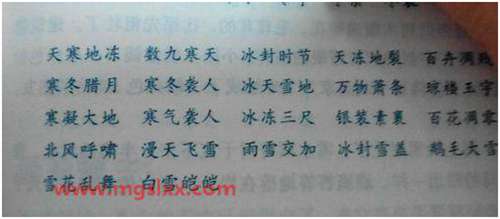 天寒地冻 数九寒天 冰封时节 天冻地裂 百卉凋残
寒冬腊月 寒冬袭人 冰天雪地 万物萧条 琼楼玉宇
寒凝大地 寒气袭人 冰冻三尺 银装素裹 百花凋零
北风呼啸 漫天飞雪 雨雪交加 冰封雪盖 鹅毛大雪
雪花乱舞 白雪皑皑
www.mgslxx.com